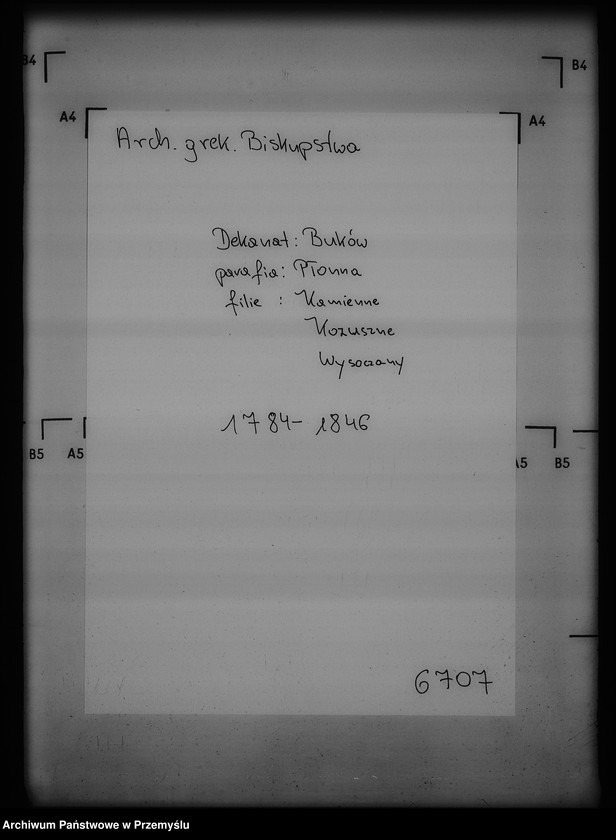 B4
B4
A4
A4
Arch. grek. Biskupstwa
Dekanat: Buków
parafia: Płonna
filie : Kamienne
Kozuszne
Wysoczany
1784- 1846
B5 A5
A5 B5
6707
Archiwum Państwowe w Przemyślu